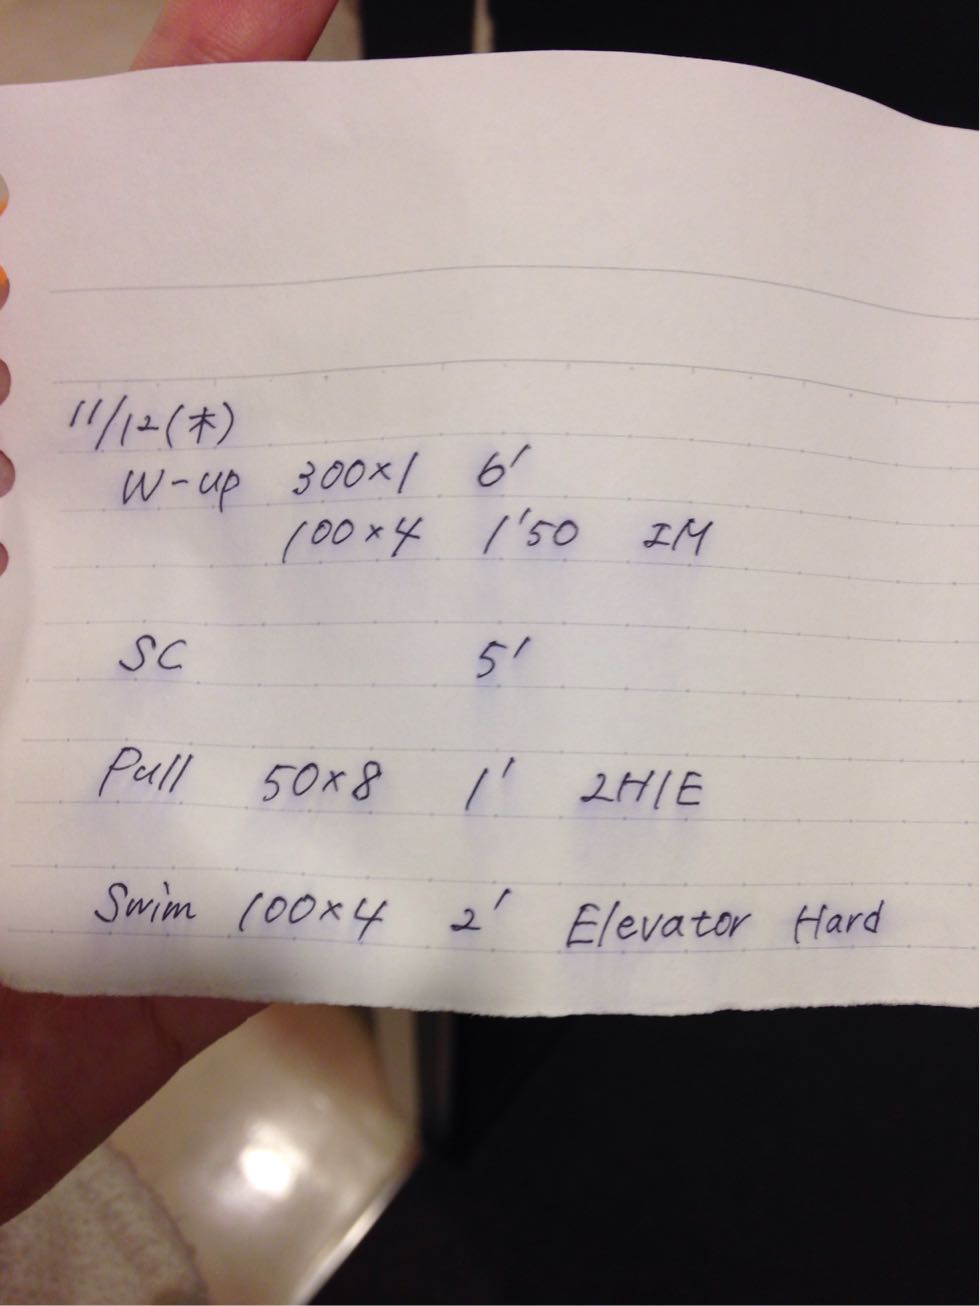 11/12(木)
W-up 300×1 6'
100×4 1'50 IM
SC 5'
Pull 50×8 1' 2H1E
Swim 100×4 2' Elevator Hard